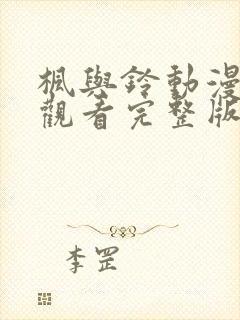 楓與鈴動漫
觀看完整版
李罡